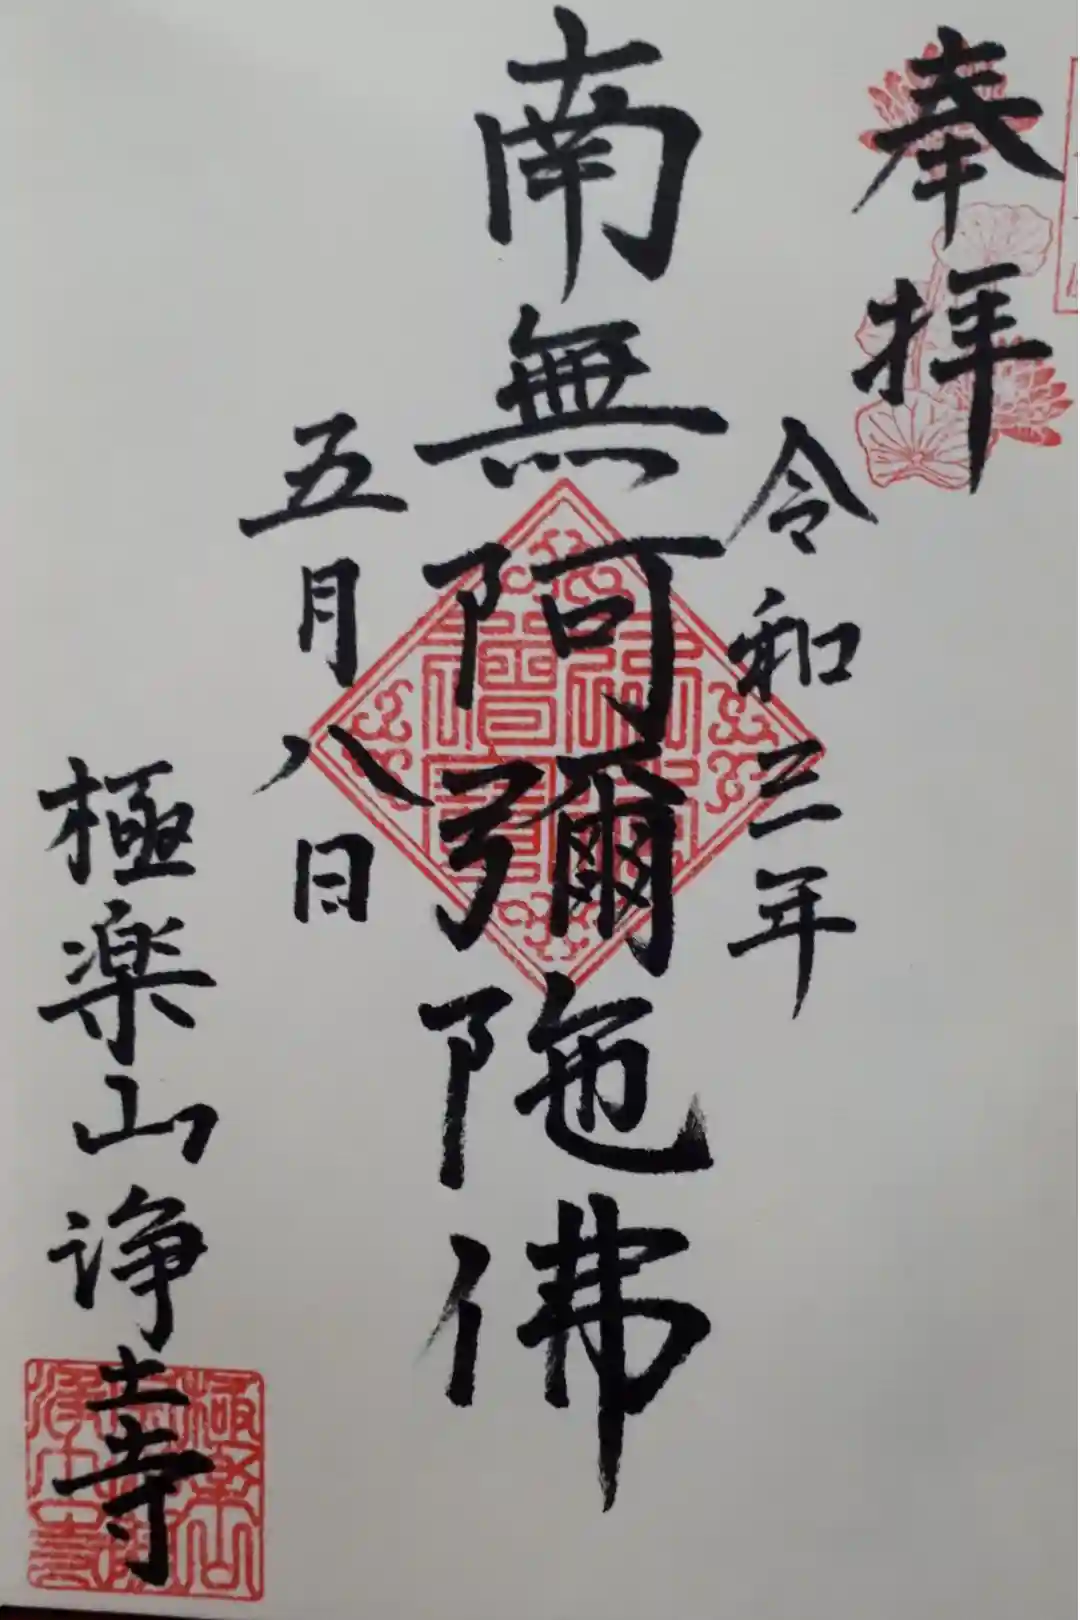 奉拝
令和三年
南無阿彌陁佛
五月八日
極楽山浄土寺